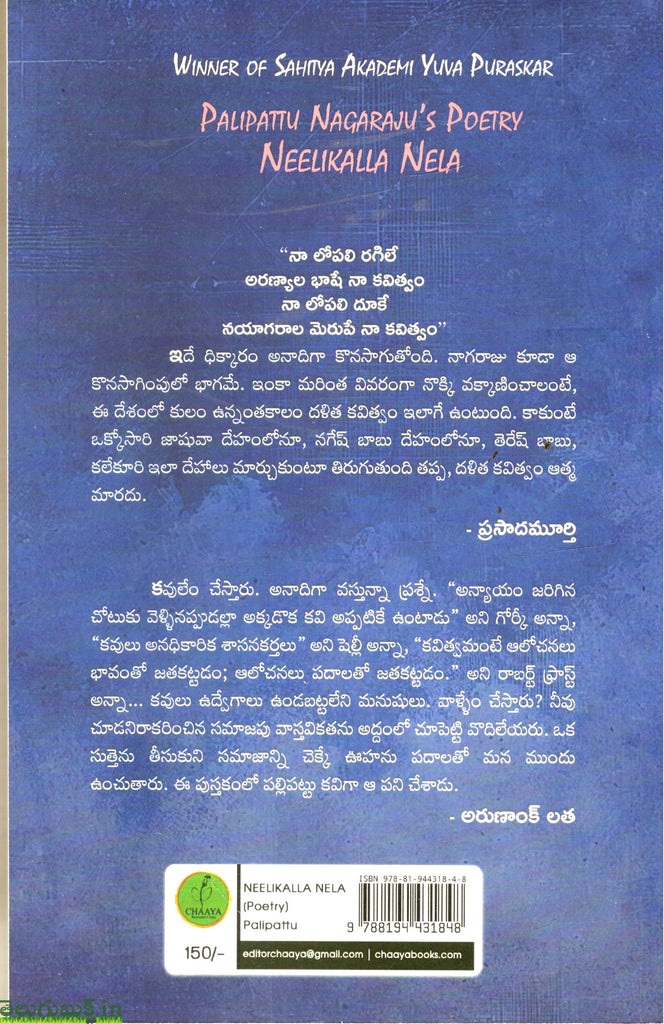 WINNER OF SAHITYA AKADEMI YUVA PURASKAR
PALIPATTU NAGARAJU'S POETRY
NEELIKALLA NELA
“నా లోపలి రగిలే
అరణ్యాల భాషే నా కవిత్వం
నా లోపలి దూకే
నయాగరాల మెరుపే నా కవిత్వం”
ఇదే ధిక్కారం అనాదిగా కొనసాగుతోంది. నాగరాజు కూడా ఆ
కొనసాగింపులో భాగమే. ఇంకా మరింత వివరంగా నొక్కి వక్కాణించాలంటే,
ఈ దేశంలో కులం ఉన్నంతకాలం దళిత కవిత్వం ఇలాగే ఉంటుంది. కాకుంటే
ఒక్కోసారి జాషువా దేహంలోనూ, నగేష్ బాబు దేహంలోనూ, తెరేష్ బాబు,
కలేకూరి ఇలా దేహాలు మార్చుకుంటూ తిరుగుతుంది తప్ప, దళిత కవిత్వం ఆత్మ
మారదు.
- ప్రసాదమూర్తి
కవులేం చేస్తారు. అనాదిగా వస్తున్నా ప్రశ్నే. “అన్యాయం జరిగిన
చోటుకు వెళ్ళినప్పుడల్లా అక్కడొక కవి అప్పటికే ఉంటాడు” అని గోర్కీ అన్నా,
“కవులు అనధికారిక శాసనకర్తలు” అని షెల్లీ అన్నా, “కవిత్వమంటే ఆలోచనలు
భావంతో జతకట్టడం; ఆలోచనలు పదాలతో జతకట్టడం.” అని రాబర్ట్ ఫ్రాస్ట్
అన్నా... కవులు ఉద్వేగాలు ఉండబట్టలేని మనుషులు. వాళ్ళేం చేస్తారు? నీవు
చూడనిరాకరించిన సమాజపు వాస్తవికతను అద్దంలో చూపెట్టి వొదిలేయరు. ఒక
సుత్తెను తీసుకుని సమాజాన్ని చెక్కే ఊహను పదాలతో మన ముందు
ఉంచుతారు. ఈ పుస్తకంలో పల్లిపట్టు కవిగా ఆ పని చేశాడు.
- అరుణాంక్ లత
CHAAYA
150/-
NEELIKALLA NELA
(Poetry)
Palipattu
ISBN 978-81-944318-4-8
9 788194 431848
editorchaaya@gmail.com | chaayabooks.com
తెలుగుబుక్స్.in